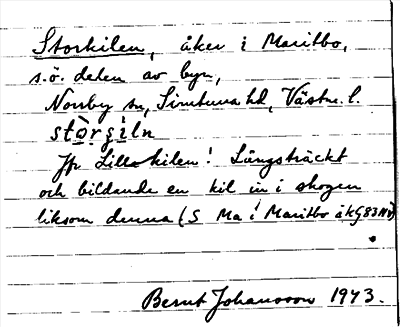 Storkilen, åker i Maritbo,
s.ö. delen av byn,
Norrby sn, Simtuna hd, Västm. l.
stòrçìln
Jfr Lillekilen! Långsträckt
och bildande en kil in i skogen
liksom denna (S Ma i Maritbo åkG83NV)
Bernt Johansson 1943.